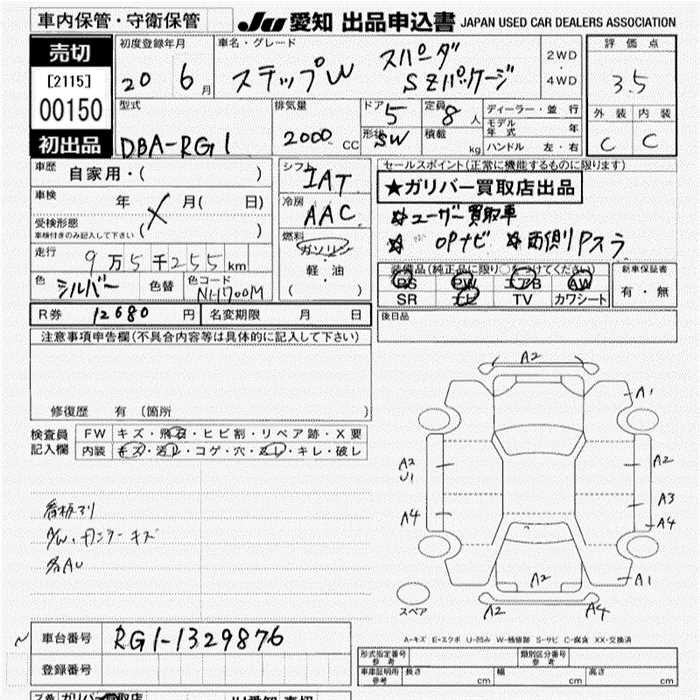 車内保管・守衛保管
JU 愛知 出品申込書 JAPAN USED CAR DEALERS ASSOCIATION
売切
[2115]
00150
初出品
初度登録年月
20 6月
車名・グレード
ステップW スパーダ
SZパッケージ
2WD
・
4WD
評価点
3.5
外装 内装
C C
型式
DBA-RG1
排気量
2000 CC
ドア 5
形状 SW
定員 8人
積載 kg
ディーラー・並行
モデル年式 年
ハンドル 左・右
車歴
自家用・( )
車検 年 月( 日)
受検形態
車検付きのみ記入して下さい ( )
走行
9万5千255km
色 シルバー 色替 色コード NH700M
シフト
IAT
冷房
AAC
燃料
ガソリン
・
軽・油
( )
セールスポイント(正常に機能するものに限ります)
★ガリバー買取店出品
☆ユーザー買取車
☆ OPナビ ☆両側Pスラ
装備品(純正品に限り○をつけてください)
PS PW エアB AW
SR ナビ TV カワシート
新車保証書
有・無
R券 12680円 名変期限 月 日
後日品
注意事項申告欄(不具合内容等は具体的に記入して下さい)
修復歴 有 (箇所 )
検査員
記入欄
FW キズ・飛石・ヒビ割・リペア跡・X要
内装 キズ・汚レ・コゲ・穴・スレ・キレ・破レ
看板アリ
各AU
A2
A1
A2
U1
A2
A3
A4
A4
A1
A2
A2
A4
スペア
A-キズ E-エクボ U-凹み W-補修跡 S-サビ C-腐食 XX-交換済
車台番号 RG1-1329876
登録番号
形式指定番号 参考
類別区分番号 参考
車庫証明用 参考 長さ cm 幅 cm 高さ cm
ガリバー買取店
JU愛知 売切